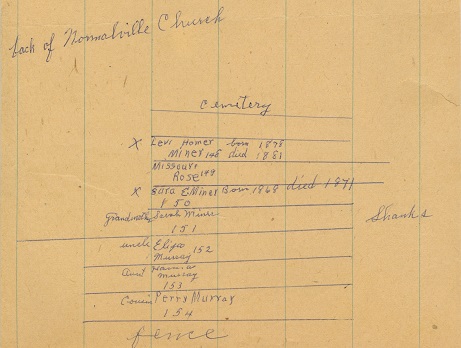 back of Normalville Church
Cemetery
X Levi Homer born 1878
Miner 148 died 1881
Missouri
Rose 149
X Cora E Miner Born 1868 died 1871
150
Grandmother Sarah Miner
151
Shanks
uncle Elijah 152
Murray
Aunt Hanna
Murray
153
Cousin Perry Murray
154
fence